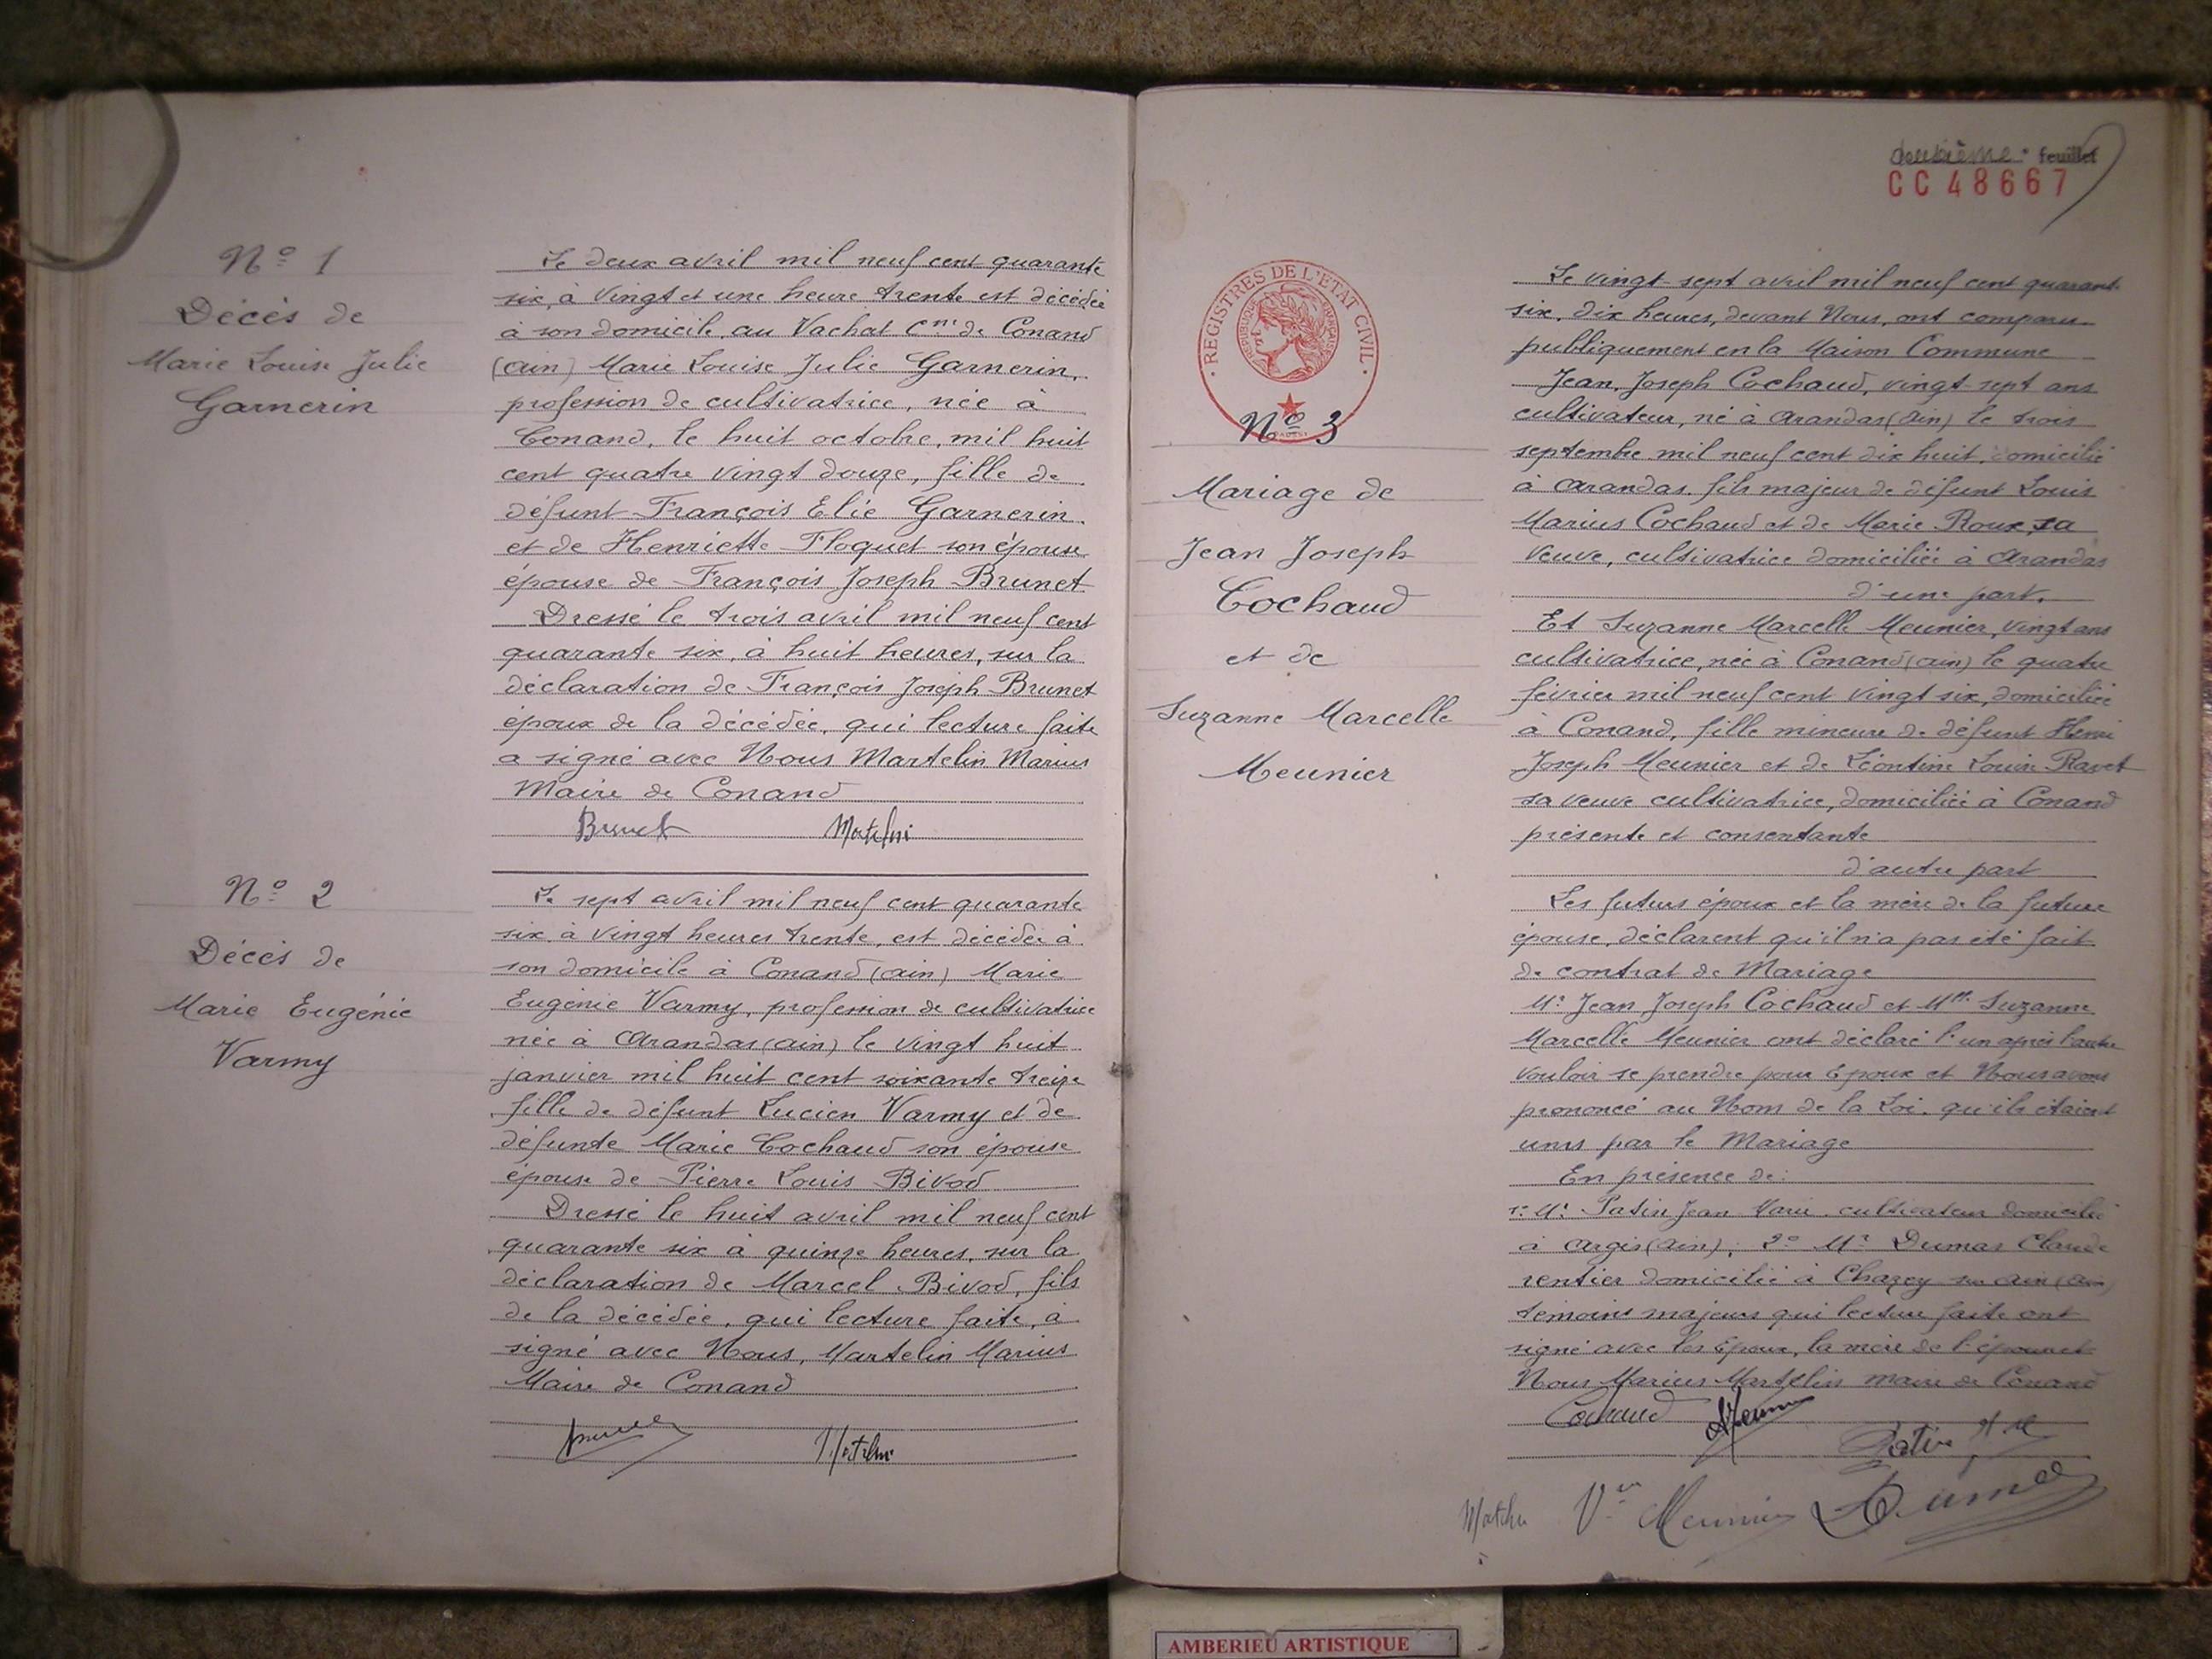 N° 1
Décès de
Marie Louise Julie
Garnerin
Le deux avril mil neuf cent quarante
six, à vingt et une heure trente est décédée
à son domicile, au Vachat Cne de Conand
(ain) Marie Louise Julie Garnerin,
profession de cultivatrice, née à
Conand, le huit octobre, mil huit
cent quatre vingt douze, fille de
défunt François Elie Garnerin
et de Henriette Floquet son épouse
épouse de François Joseph Brunet
Dressé le trois avril mil neuf cent
quarante six, à huit heures, sur la
déclaration de François Joseph Brunet
époux de la décédée, qui lecture faite
a signé avec Nous Martelin Marius
Maire de Conand
Brunet Martelin
N° 2
Décès de
Marie Eugénie
Varmy
Le sept avril mil neuf cent quarante
six à vingt heures trente, est décédée à
son domicile à Conand (ain) Marie
Eugénie Varmy, profession de cultivatrice
née à Arandas (ain) le vingt huit
janvier mil huit cent soixante treize
fille de défunt Lucien Varmy et de
défunte Marie Cochaud son épouse
épouse de Pierre Louis Bivod
Dressé le huit avril mil neuf cent
quarante six à quinze heures, sur la
déclaration de Marcel Bivod, fils
de la décédée, qui lecture faite, à
signé avec Nous, Martelin Marius
Maire de Conand
Martelin
deuxième feuillet
CC 48667
REGISTRES DE L'ETAT CIVIL
REPUBLIQUE FRANÇAISE
N° 3
Mariage de
Jean Joseph
Cochaud
et de
Suzanne Marcelle
Meunier
Le vingt-sept avril mil neuf cent quarante
six, dix heures, devant Nous, ont comparu
publiquement en la Maison Commune
Jean, Joseph Cochaud, vingt-sept ans
cultivateur, né à Arandas (ain) le trois
septembre mil neuf cent dix huit, domicilié
à Arandas, fils majeur de défunt Louis
Marius Cochaud et de Marie Roux, sa
veuve, cultivatrice domiciliée à Arandas
d'une part.
Et Suzanne Marcelle Meunier, vingt ans
cultivatrice, née à Conand (ain) le quatre
février mil neuf cent vingt six, domiciliée
à Conand, fille mineure de défunt Henri
Joseph Meunier et de Léontine Louise Ravet
sa veuve cultivatrice, domiciliée à Conand
présente et consentante
d'autre part
Les futurs époux et la mère de la future
épouse, déclarent qu'il n'a pas été fait
de contrat de Mariage
Mr Jean Joseph Cochaud et Mlle Suzanne
Marcelle Meunier ont déclaré l'un après l'autre
vouloir se prendre pour Epoux et Nous avons
prononcé au Nom de la Loi, qu'ils étaient
unis par le Mariage
En présence de:
1° Mr Patin Jean Marie, cultivateur domicilié
à Argis (ain), 2° Mr Dumas Claude
rentier domicilié à Chazey sur Ain (ain)
témoins majeurs qui lecture faite ont
signé avec les Epoux, la mère de l'épouse et
Nous Marius Martelin maire de Conand
Cochaud SMeunier
Patin J.M
Martelin Vve Meunier Dumas
AMBERIEU ARTISTIQUE